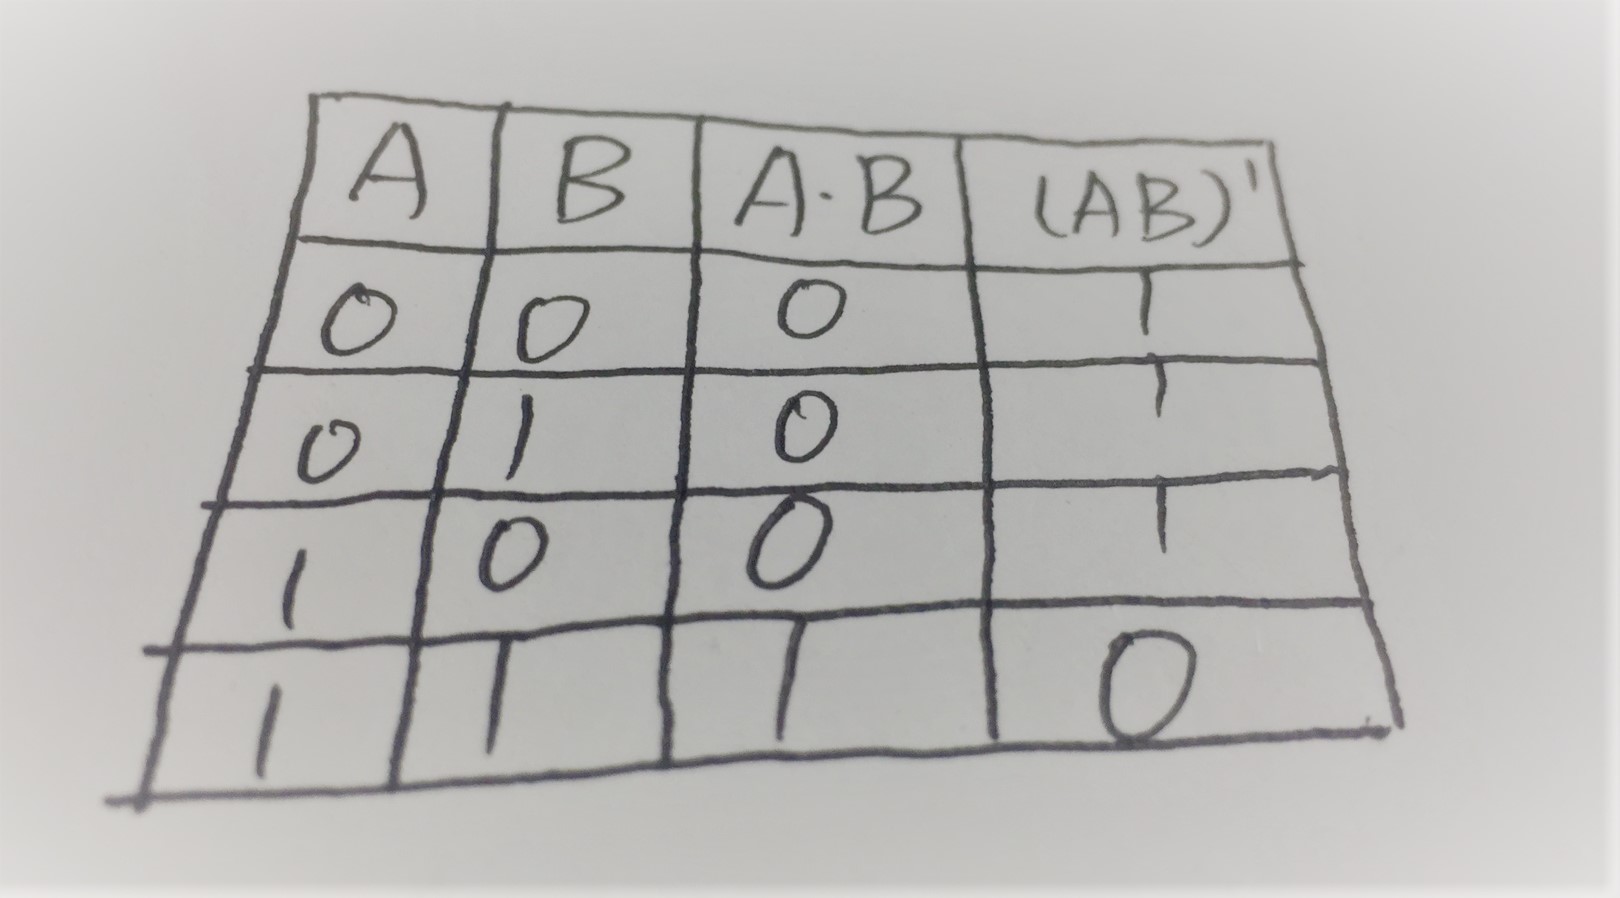 A B A·B (AB)'
0 0 0 1
0 1 0 1
1 0 0 1
1 1 1 0